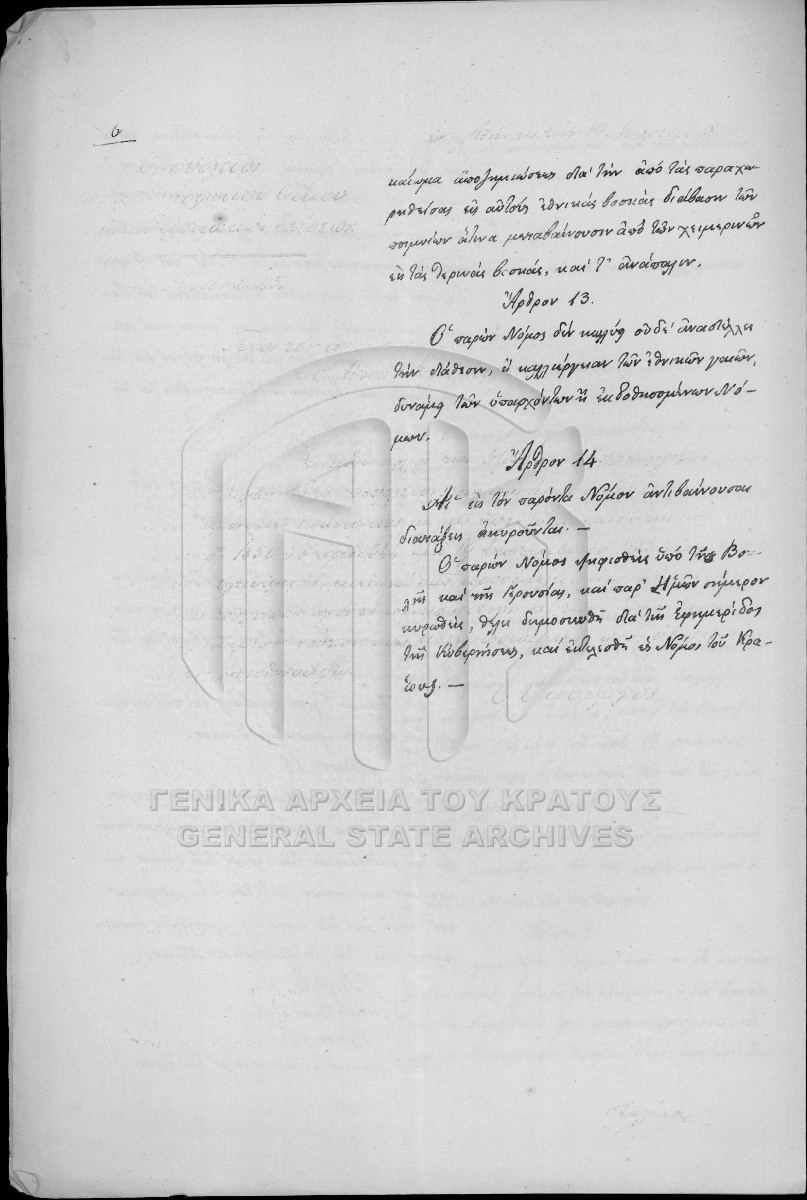 6
καίωμα ἀποζημιώσεως διὰ τὴν ἀπὸ τὰς παραχω-
ρηθείσας εἰς αὐτοὺς ἐθνικὰς βοσκὰς διάβασιν τῶν
ποιμνίων ἅτινα μεταβαίνουσιν ἀπὸ τῶν χειμερινῶν
εἰς τὰς θερινὰς βοσκὰς, καὶ τ' ἀνάπαλιν.
Ἄρθρον 13.
Ὁ παρὼν Νόμος δὲν κωλύει οὐδὲ ἀναστέλλει
τὴν διάθεσιν, ἢ καλλιέργειαν τῶν ἐθνικῶν γαιῶν,
δυνάμει τῶν ὑπαρχόντων ἢ ἐκδοθησομένων Νό-
μων.
Ἄρθρον 14
Αἱ εἰς τὸν παρόντα Νόμον ἀντιβαίνουσαι
διατάξεις ἀκυροῦνται. —
Ὁ παρὼν Νόμος ψηφισθεὶς ὑπὸ τῆς Βου-
λῆς καὶ τῆς Γερουσίας, καὶ παρ' Ἡμῶν σήμερον
κυρωθεὶς, θέλει δημοσιευθῆ διὰ τῆς Ἐφημερίδος
τῆς Κυβερνήσεως, καὶ ἐκτελεσθῆ ὡς Νόμος τοῦ Κρά-
τους. —
ΓΕΝΙΚΑ ΑΡΧΕΙΑ ΤΟΥ ΚΡΑΤΟΥΣ
GENERAL STATE ARCHIVES